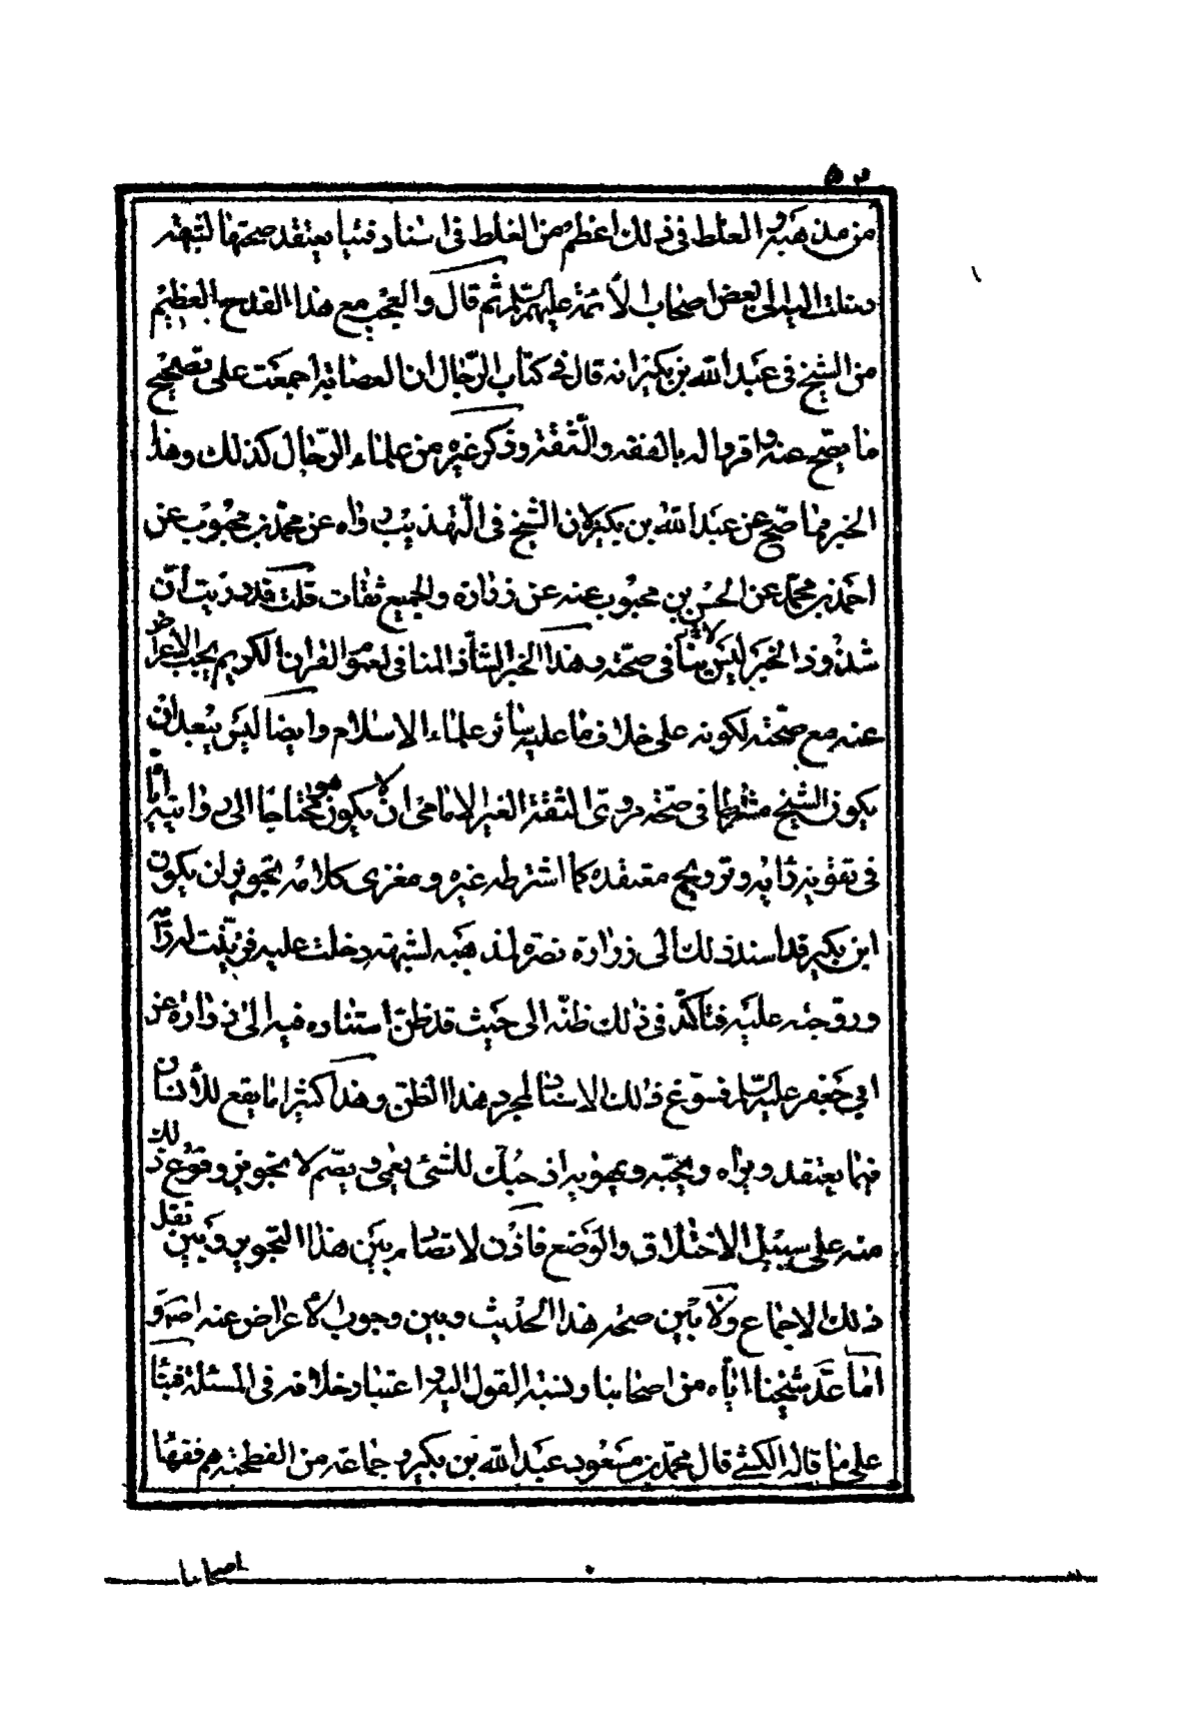 ٥٢
من مذهبه و الغلط فى ذلك اعظم من الغلط فى اسناد فتيا يعتقد صحتها لشبهة
دخلت اليه الى بعض اصحاب الأئمة عليهم السلام ثم قال والعجب مع هذا القدح العظيم
من الشيخ فى عبد الله بن بكير انه قال فى كتاب الرجال ان العصابة اجمعت على تصحيح
ما يصح عنه و اقروا له بالفقه والثقة وذكر غيره من علماء الرجال كذلك وهذا
الخبر مما صح عن عبد الله بن بكير لان الشيخ فى التهذيب رواه عن محمد بن محبوب عن
احمد بن محمد عن الحسن بن محبوب عنه عن زرارة والجميع ثقات قلت قد دريت أن
شذوذ الخبر ليس ينافى صحته وهذا الخبر الشاذ المنافى لعموم القرآن الكريم يجب الاعراض
عنه مع صحته لكونه على خلاف ما عليه سائر علماء الاسلام وايضا ليس يبعد ان
يكون الشيخ مشترطا فى صحة مروى الثقة الغير الامامى ان لا يكون هو محتاجا الى روايته اياه
فى تقوية رأيه وترويج معتقده كما اشترطه غيره ومغزى كلامه تجويز ان يكون
ابن بكير قد اسند ذلك الى زرارة نصرة لمذهبه لشبهة دخلت عليه فزينت له رأيه
وروجته عليه فتأكد فى ذلك ظنه الى حيث قد ظن استناده فيه الى زرارة عن
ابي جعفر عليه السلام فسوغ ذلك الاسناد لمجرد هذا الظن وهذا كثيرا ما يقع للأنسان
فيما يعتقد ويراه ويحبه ويهويه اذ حبك للشئ يعمى ويصم لا تجويز وقوع ذلك
منه على سبيل الاختلاق والوضع فاذن لا تصادم بين هذا التجويز وبين نقل
ذلك الاجماع ولا بين صحة هذا الحديث وبين وجوب الأعراض عنه اصلا و
اما عد شيخنا اياه من اصحابنا ونسبة القول اليه و اعتبار خلافه فى المسئلة فبناء
على ما قاله الكشى قال محمد بن مسعود عبد الله بن بكير و جماعة من الفطحية هم فقهاء
اصحابنا